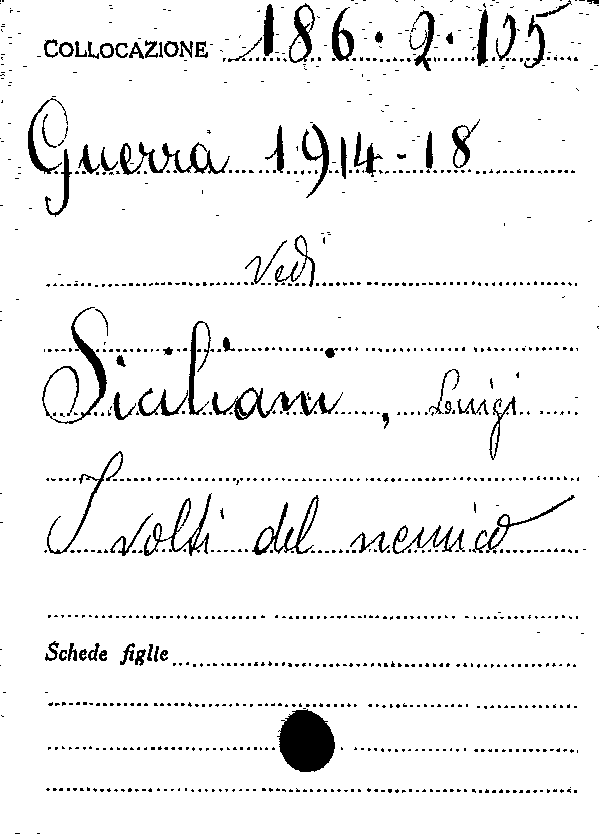 COLLOCAZIONE 186.2.105
Guerra 1914-18
Vedi
Siciliani, Luigi
I volti del nemico
Schede figlie